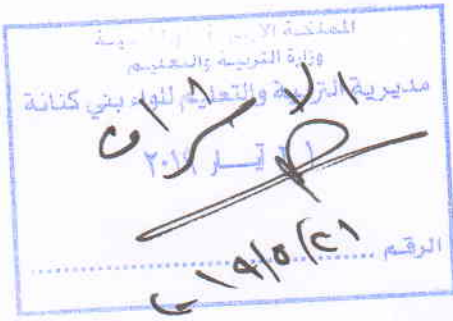 المملكة الأردنية الهاشمية
وزارة التربية والتعليم
مديرية التربية والتعليم للواء بني كنانة
الاشراف
أيــار ٢٠١٩
الرقـم ......................
٢٠١٩/٥/٢١